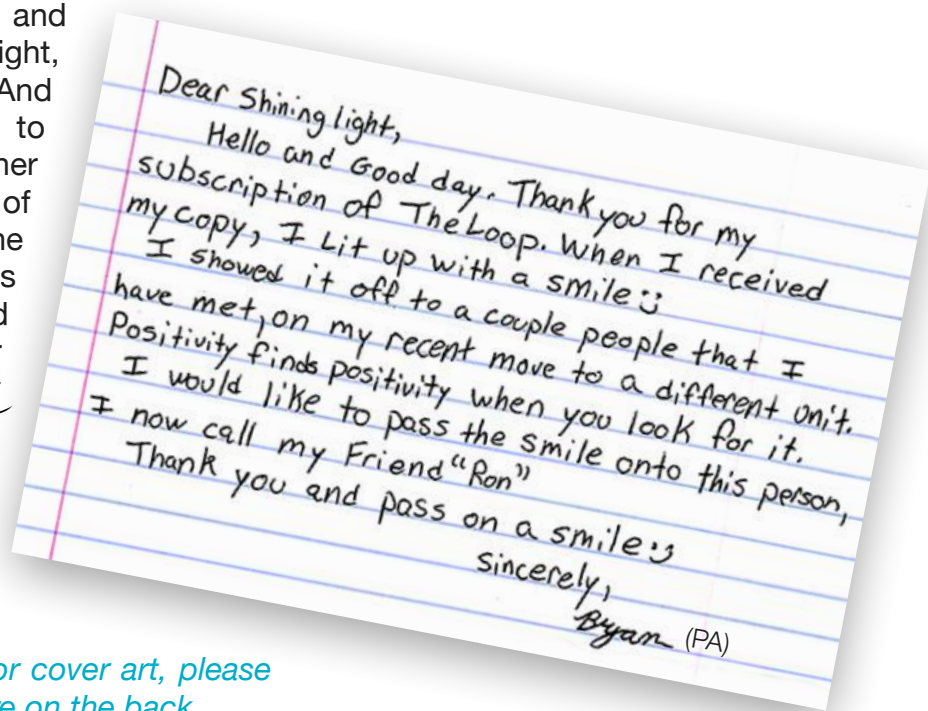 and
ight,
And
to
her
of
ne
s
d
Dear Shining light,
Hello and Good day. Thank you for my
subscription of The Loop. When I received
my copy, I Lit up with a smile :)
I showed it off to a couple people that I
have met, on my recent move to a different unit.
Positivity finds positivity when you look for it.
I would like to pass the smile onto this person,
I now call my Friend "Ron"
Thank you and pass on a smile :)
Sincerely,
Bryan (PA)
or cover art, please
e on the back